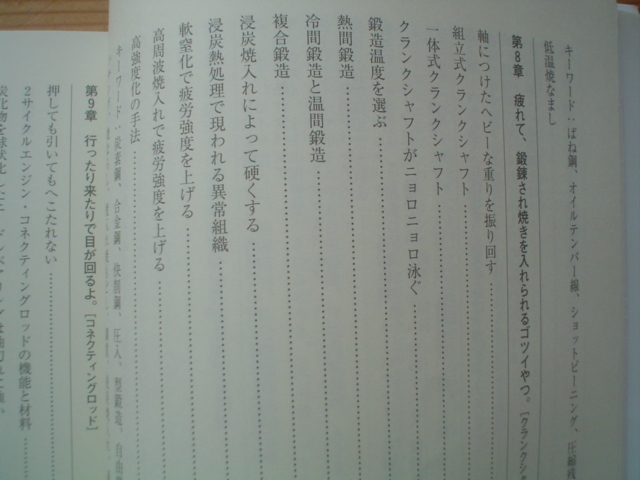 キーワード：ばね鋼、オイルテンパー線、ショットピーニング、圧縮残
低温焼なまし
第8章 疲れて、鍛錬され焼きを入れられるゴツイやつ。［クランクシャ
軸につけたヘビーな重りを振り回す
組立式クランクシャフト
一体式クランクシャフト
クランクシャフトがニョロニョロ泳ぐ
鍛造温度を選ぶ
熱間鍛造
冷間鍛造と温間鍛造
複合鍛造
浸炭焼入れによって硬くする
浸炭熱処理で現われる異常組織
軟窒化で疲労強度を上げる
高周波焼入れで疲労強度を上げる
高強度化の手法
キーワード：炭素鋼、合金鋼、快削鋼、圧入、型鍛造、自由
第9章 行ったり来たりで目が回るよ。［コネクティングロッド］
押しても引いてもへこたれない
2サイクルエンジン・コネクティングロッドの機能と材料
炭化物を球状化